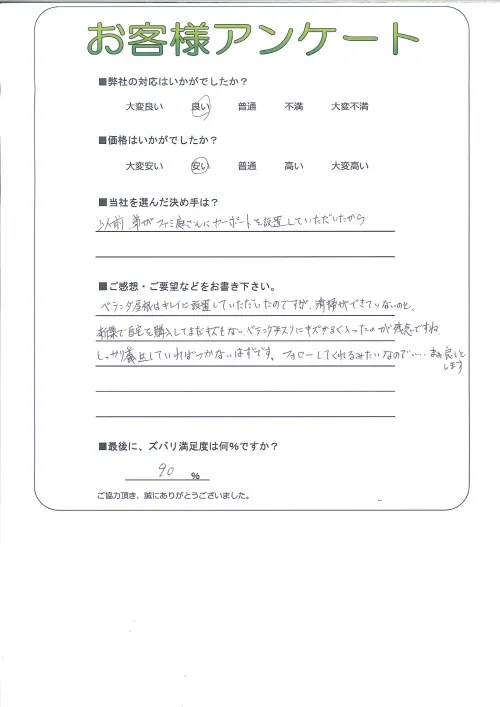 お客様アンケート
■弊社の対応はいかがでしたか？
大変良い 良い 普通 不満 大変不満
■価格はいかがでしたか？
大変安い 安い 普通 高い 大変高い
■当社を選んだ決め手は？
以前、弟がファミ庭さんにカーポートを設置していただいたから
■ご感想・ご要望などをお書き下さい。
ベランダ屋根はキレイに設置していただいたのですが、清掃ができていないのと、
新築で自宅を購入してまだキズもない、ベランダ手スリにキズが入ったのが残念ですね。
しっかり養生していればつかないはずです。フォローしてくれるみたいなので… まぁ良しと
します
■最後に、ズバリ満足度は何％ですか？
90 ％
ご協力頂き、誠にありがとうございました。